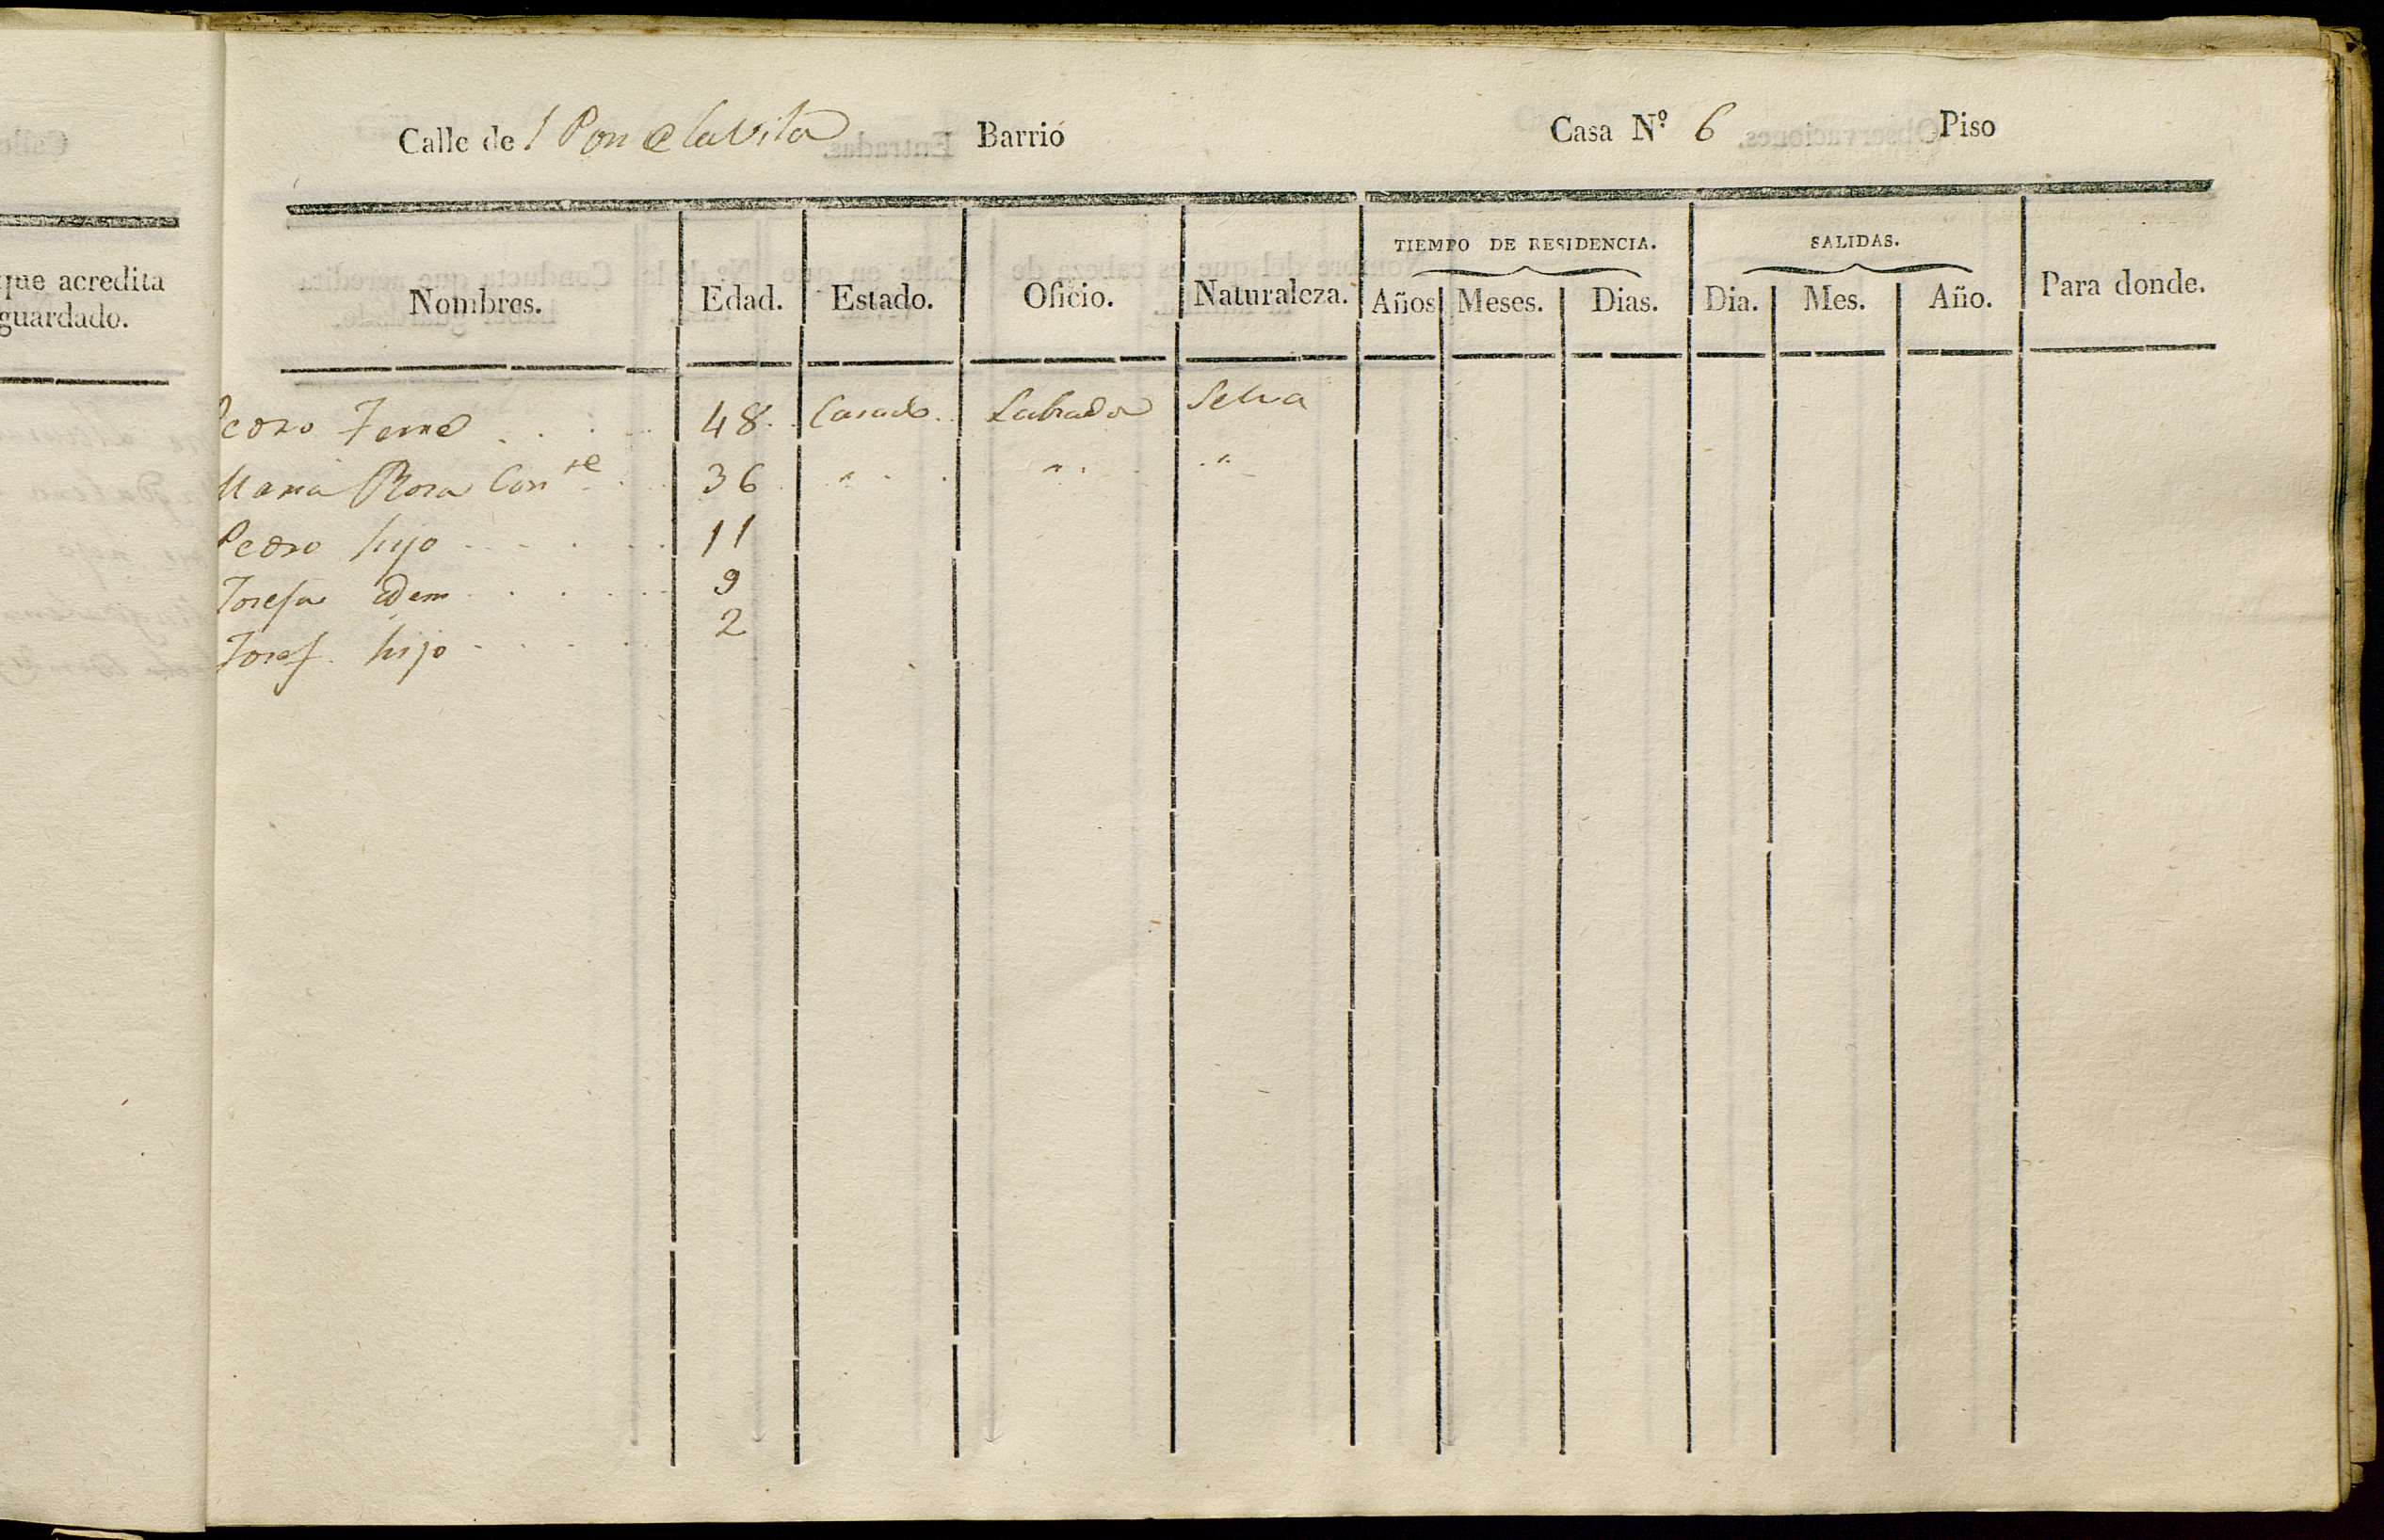 que acredita
guardado.
Calle de l Pou de la Vila Barrió Casa Nº 6 Piso
TIEMPO DE RESIDENCIA. SALIDAS.
Nombres. Edad. Estado. Oficio. Naturaleza. Años Meses. Dias. Dia. Mes. Año. Para donde.
Pedro 48 Casado Labrador Selva
Maria Rosa Conte 36 " " "
Pedro hijo 11
Josefa idem 9
Josef hijo 2